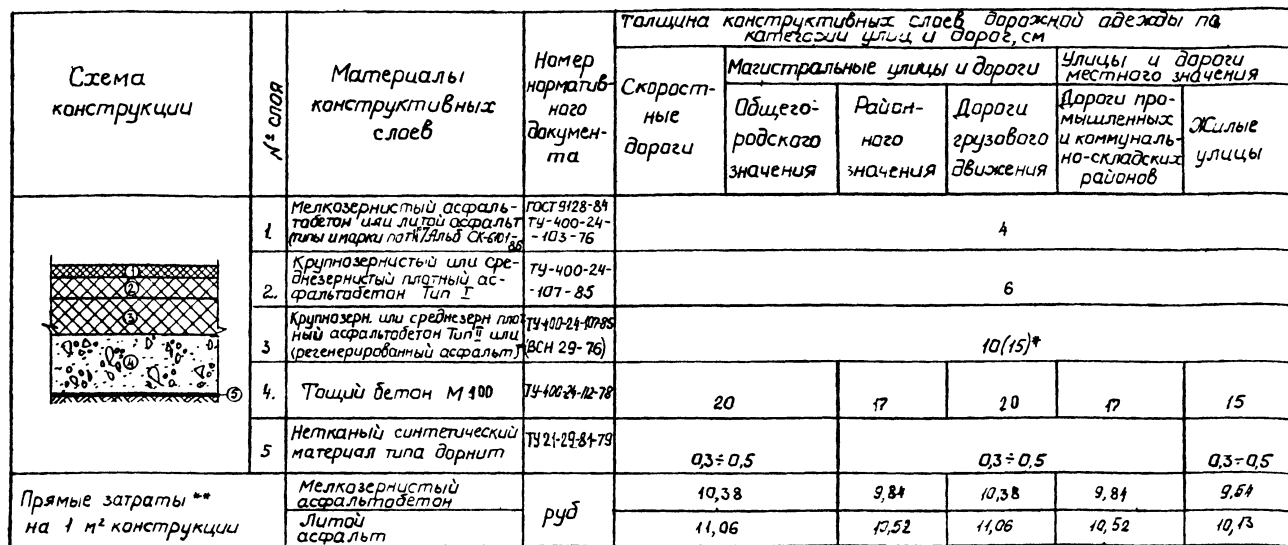 Схема
конструкции
№ слоя
Материалы
конструктивных
слоев
Номер
норматив-
ного
докумен-
та
Толщина конструктивных слоев дорожной одежды по
категории улиц и дорог, см
Скорост-
ные
дороги
Магистральные улицы и дороги
Общего-
родского
значения
Район-
ного
значения
Дороги
грузового
движения
Улицы и дороги
местного значения
Дороги про-
мышленных
и коммуналь-
но-складских
районов
Жилые
улицы
1
2
3
4
5
1.
Мелкозернистый асфаль-
тобетон или литой асфальт
(типы и марки по Альб СК-6101-86
ГОСТ 9128-84
ТУ-400-24-
-103-76
4
2.
Крупнозернистый или сре-
днезернистый плотный ас-
фальтобетон Тип I
ТУ-400-24-
-107-85
6
3
Крупнозерн. или среднезерн плот
ный асфальтобетон Тип II или
(регенерированный асфальт)
ТУ-400-24-107-85
(ВСН 29-76)
10(15)*
4.
Тощий бетон М 100
ТУ-400-24-112-78
20
17
20
17
15
5
Нетканый синтетический
материал типа дорнит
ТУ 21-29-81-79
0,3÷0,5
0,3÷0,5
0,3÷0,5
Прямые затраты **
на 1 м² конструкции
Мелкозернистый
асфальтобетон
руб
10,38
9,84
10,38
9,84
9,54
Литой
асфальт
11,06
10,52
11,06
10,52
10,13